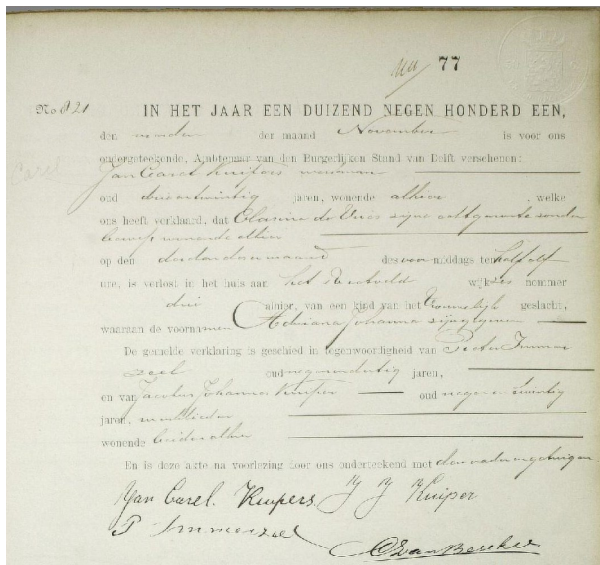 77
No 921 IN HET JAAR EEN DUIZEND NEGEN HONDERD EEN,
den der maand November is voor ons
ondergeteekende, Ambtenaar van den Burgerlijken Stand van Delft verschenen:
Carel
Jan Carel Kuipers werkman
oud drieentwintig jaren, wonende alhier, welke
ons heeft verklaard, dat Clasina de Vries zijne echtgenoote zonder
beroep wonende alhier
op den derden dezer maand des voormiddags ten half elf
ure, is verlost in het huis aan het Rietveld wijk zes nommer
drie alhier, van een kind van het Vrouwelijk geslacht,
waaraan de voornamen Adriana Johanna zijn gegeven
De gemelde verklaring is geschied in tegenwoordigheid van Pieter Immer
zeel oud negenendertig jaren,
en van Jacobus Johannes Kuiper oud negenentwintig
jaren, werklieden
wonende beiden alhier
En is deze akte na voorlezing door ons onderteekend met den vader en getuigen
Jan Carel. Kuipers. J J Kuiper
P Immerzeel